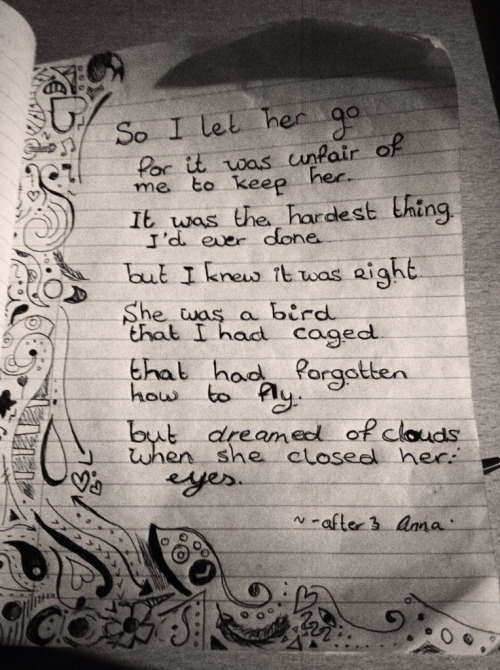 So I let her go
for it was unfair of
me to keep her.
It was the hardest thing
I'd ever done
but I knew it was Right
She was a bird
that I had caged
that had forgotten
how to fly.
but dreamed of clouds
when she closed her.
eyes.
~-after 3 Anna.